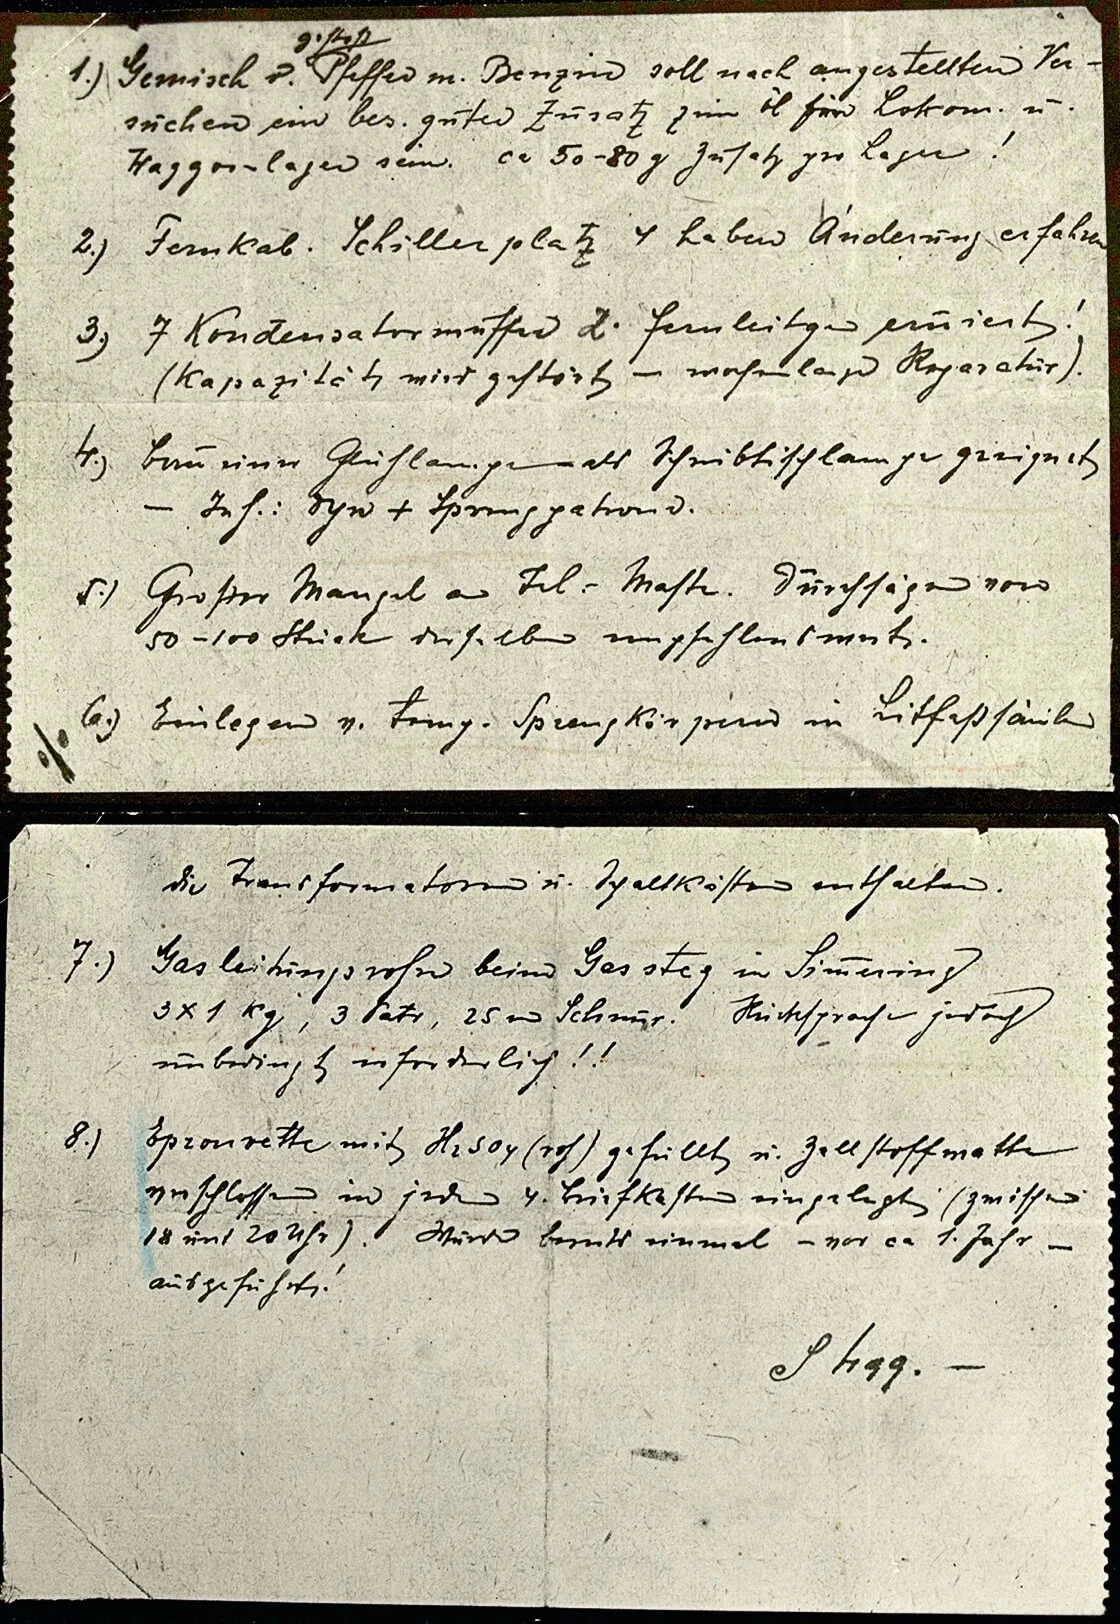 gestoß.
1.) Gemisch v. Pfeffer m. Benzin soll nach angestellten Ver-
suchen ein bes. guter Zusatz zum Öl für Lokom. u.
Waggonlager sein. ca 50-80 g Zusatz pro Lager!
2.) Fernkab. Schillerplatz 4 haben Änderung erfahren
3.) 7 Kondensatormuffen d. Fernleitgen eruiert!
(Kapazität wird gestört — wochenlange Reparatur).
4.) Braune Glühlampe als Schreibtischlampe geeignet
— Inh.: Dyn + Sprengpatrone.
5.) Großer Mangel an Tel.- Maste. Durchsägen von
50-100 Stück derselben empfehlenswert.
6.) Einlegen v. Temp. Sprengkörpern in Litfaßsäulen
%
die Transformatoren u. Schaltkästen enthalten.
7.) Gasleitungsrohre beim Gassteg in Simmering
3x1 kg, 3 Patr, 25 m Schnur. Rücksprache jedoch
unbedingt erforderlich!!
8.) Eprouvette mit H2SO4 (roh) gefüllt u. Zellstoffwatte
verschlossen in jeden 4. Briefkasten eingelegt (zwischen
18 und 20 Uhr). Wurde bereits einmal - vor ca 1. Jahr —
ausgeführt!